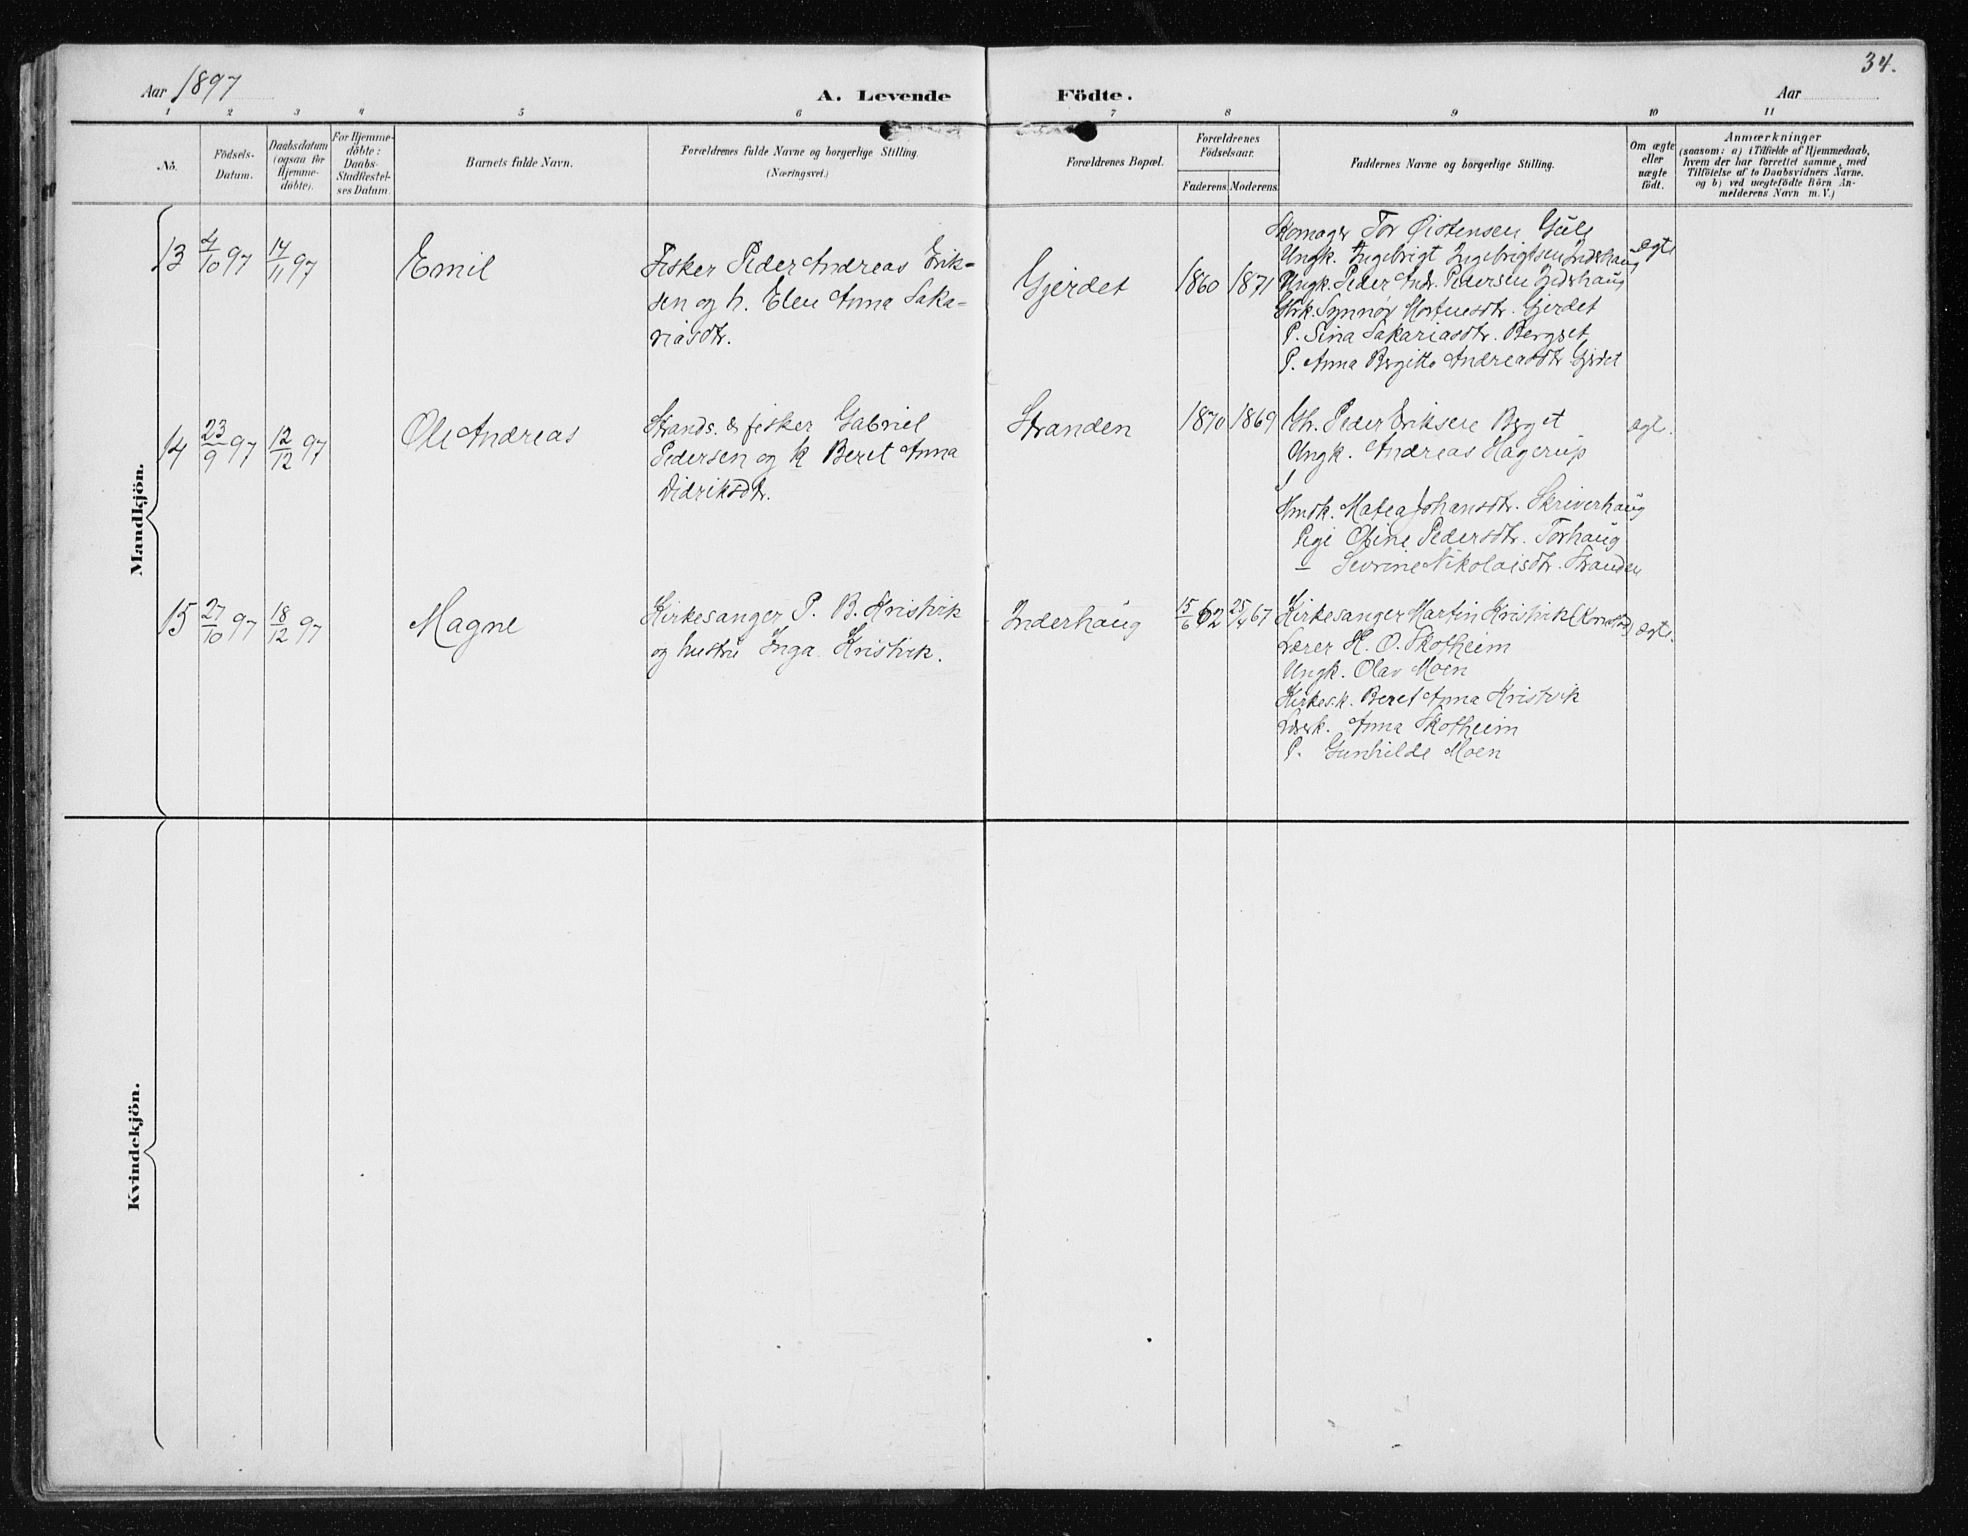 34.
Aar 1897 A. Levende Födte. Aar
1 2 3 4 5 6 7 8 9 10 11
No.
Födsels-
Datum.
Daabsdatum
(ogsaa for
Hjemme-
döbte).
For Hjemme-
döbte:
Daabs-
Stadfæstel-
ses Datum.
Barnets fulde Navn.
Forældrenes fulde Navne og borgerlige Stilling.
(Næringsvei.)
Forældrenes Bopæl.
Forældrenes
Födselsaar.
Faderens. Moderens.
Faddernes Navne og borgerlige Stilling.
Om ægte
eller
uægte
födt.
Anmærkninger
(saasom: a) i Tilfælde af Hjemmedaab,
hvem der har forrettet samme, med
Tilföielse af to Daabsvidners Navne.
og b) ved uægtefödte Börn An-
melderens Navn m. V.)
Mandkjön.
13 4/10 97 14/11 97 Emil
Fisker Peder Andreas Erik-
sen og h. Elen Anna Saka-
riasdtr.
Gjerdet 1860 1871
Skomager Tor Øistensen Gule
Ungk. Ingebrigt Ingebrigtsen Inderhaug
Ungk. Peder Andr. Pedersen Inderhaug
Synnøv Mortensdtr. Gjerdet
P. Sina Sakariasdtr. Bergset
P. Anna Bergitte Andreasdtr. Gjerdet
ægte
14 23/9 97 12/12 97 Ole Andreas
Strands. & fisker Gabriel
Pedersen og k Beret Anna
Didriksdtr.
Stranden 1870 1869
Peder Eriksen Berget
Ungk. Andreas Hagerup
Matea Johansdtr. Skriverhaug
Pige Oline Pedersdtr. Torhaug
— Sevrine Nikolaisdtr. Stranden
ægte.
15 27/10 97 18/12 97 Magne
Kirkesanger P. B. Kristvik
og hustru Inga Kristvik.
Inderhaug 15/6 62 25/4 67
Kirkesanger Martin Kristvik
Lærer H. O. Skotheim
Ungk. Olav Moen
Kirkes.k. Beret Anna Kristvik
Lærerk. Anna Skotheim
P. Gunhilde Moen
ægte.
Kvindekjön.